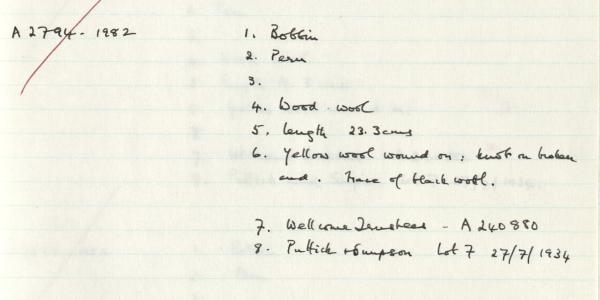 A 2794 - 1982
1. Bobbin
2. Peru
3.
4. Wood . wool
5. length 23.3cms
6. Yellow wool wound on ; knot on broken
end . Trace of black wool.
7. Wellcome Trustees - A 240880
8. Puttick + Simpson Lot 7 27/7/1934